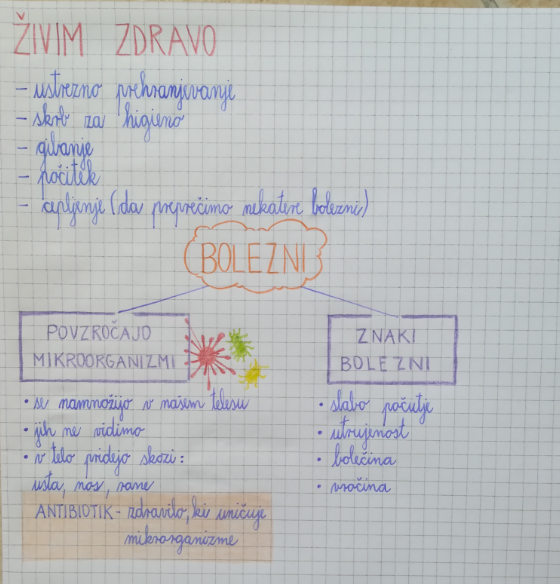 ŽIVIM ZDRAVO
- ustrezno prehranjevanje
- skrb za higieno
- gibanje
- počitek
- cepljenje (da preprečimo nekatere bolezni)
BOLEZNI
POVZROČAJO
MIKROORGANIZMI
• se namnožijo v našem telesu
• jih ne vidimo
• v telo pridejo skozi:
usta, nos, rane
ANTIBIOTIK - zdravilo, ki uničuje
mikrorganizme
ZNAKI
BOLEZNI
• slabo počutje
• utrujenost
• bolečina
• vročina